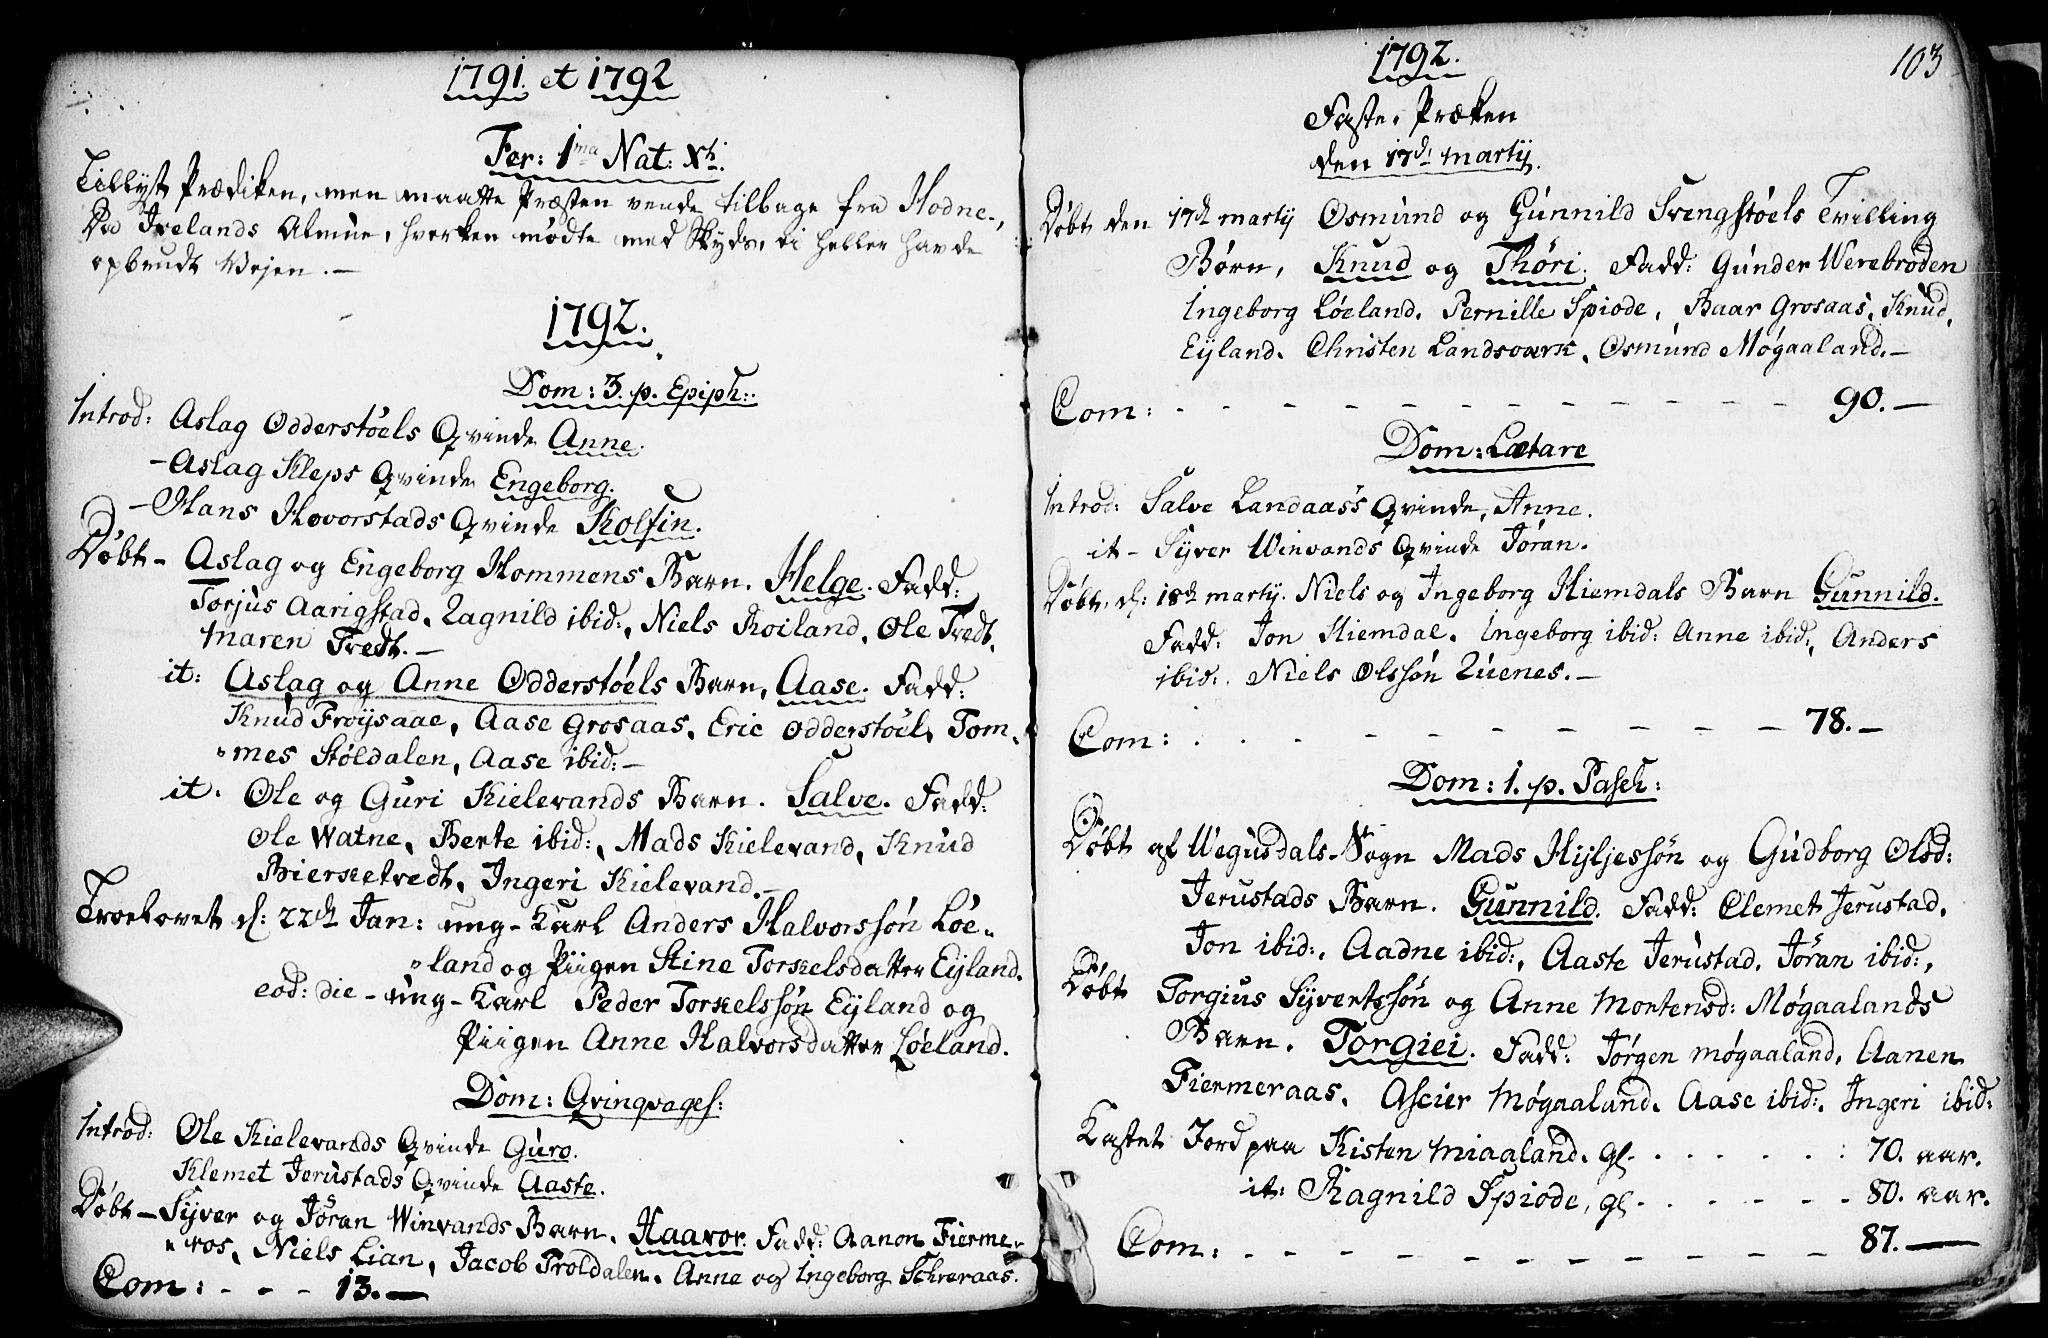 1791. et 1792
Fer: 1ma Nat: Xti.
Tillyst Prædiken, men maatte Præsten vende tilbage fra Hodne.,
Da Ivelands Almue, hverken mødte med Skyds, ei heller havde
opbrudt Vejen.—
1792.
Dom: 3. p. Epiph:.
Introd: Aslag Odderstøels Qvinde Anne.
– Aslag Kleps Qvinde Engeborg.
– Hans Hovorstads Qvinde Kolfin.
Døbt – Aslag og Engeborg Hommens Barn. Helge. Fadd:
Torjus Aarigstad, Ragnild ibid:, Niels Roiland, Ole Tredt,
Maren Tredt.—
it: Aslag og Anne Odderstøels Barn, Aase. Fadd:
Knud Frøysaae, Aase Grosaas, Eric Odderstøel, Tom-
mes Støldalen, Aase ibid:—
it. Ole og Guri Kielevands Barn. Salve. Fadd:
Ole Watne, Berte ibid:, Mads Kielevand, Knud
Bierketvedt, Ingeri Kielevand.—
Troelovet d: 22de Jan: ung-Karl Anders Halvorssøn Løe-
land og Piigen Stine Torkelsdatter Eyland.
eod: die – ung-Karl Peder Torkelssøn Eyland og
Piigen Anne Halvorsdatter Løeland.
Dom: Qvinqvages:
Introd: Ole Kielevands Qvinde Guro.
Klemet Jerustads Qvinde Aaste.
Døbt – Syver og Jøran Winvands Barn. Haavor. Fadd: Aanon Fierme-
ros, Niels Lian, Jacob Troldalen. Anne og Ingeborg Schreraas.
Com: - - - 13.—
1792.
103
Faste. Præken
den 17de Martij.
Døbt den 17de Martij Osmund og Gunnild Svengstøels Tvilling
Børn, Knud og Thøri. Fadd: Gunder Werebroden
Ingeborg Løeland. Pernille Spiode, Baar Grosaas, Knud,
Eyland. Christen Landsværk, Osmund Møgaaland.—
Com: - - - - - - - - - - - - - 90.—
Dom: Lætare
Introd: Salve Landaas's Qvinde, Anne.
it – Syver Winvands Qvinde Jøran.
Døbt, d: 18de Martij. Niels og Ingeborg Hiemdals Barn Gunnild.
Fadd: Jon Hiemdal. Ingeborg ibid: Anne ibid:, Anders
ibid:. Niels Olssøn Zuenes.—
Com: . . . - - - - - - - - 78.—
Dom: 1. p. Pasch:
Døbt af Wegusdals-Sogn Mads Hyljessøn og Gudborg Olsd:
Jerustads Barn. Gunnild. Fadd: Clemet Jerustad.
Jon ibid:, Aadne ibid:, Aaste Jerustad. Jøran ibid:,
Døbt Torgius Syvertssøn og Anne Mortensd: Møgaalands
Barn. Torgiei. Fadd: Jørgen Møgaaland, Aanen
Fiermeraas. Ascier Møgaaland. Aase ibid:, Ingeri ibid:
Kastet Jord paa Kisten Miaaland. gl. . . . . . . : 70. aar.
it: Ragnild Spiode, gl. . . . - - - - 80. aar.
Com: - - - - - - - - - - - - 87.—